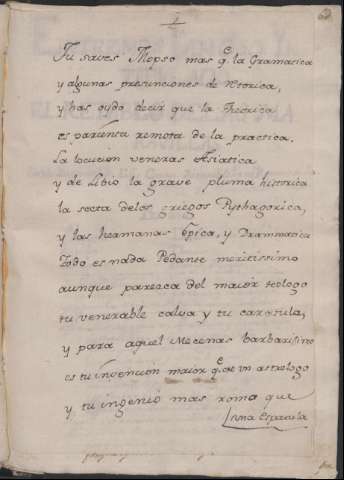 Tu saves Mopso mas q̃ la Gramatica
y algunas presunciones de Retorica,
y has oydo decir que la Theorica
es parienta remota de la practica.
La locucion veneras Asiatica
y de Libio la grave pluma historica
la secta delos griegos Pythagorica,
y las hermanas Epica, y Drammatica
Todo es nada Pedante meritissimo
aunque paresca del maior teologo
tu venerable calva y tu caratula,
y para aquel Mecenas barbarisimo
es tu invencion maior q̃ de un astrologo
y tu ingenio mas romo que
una Espatula